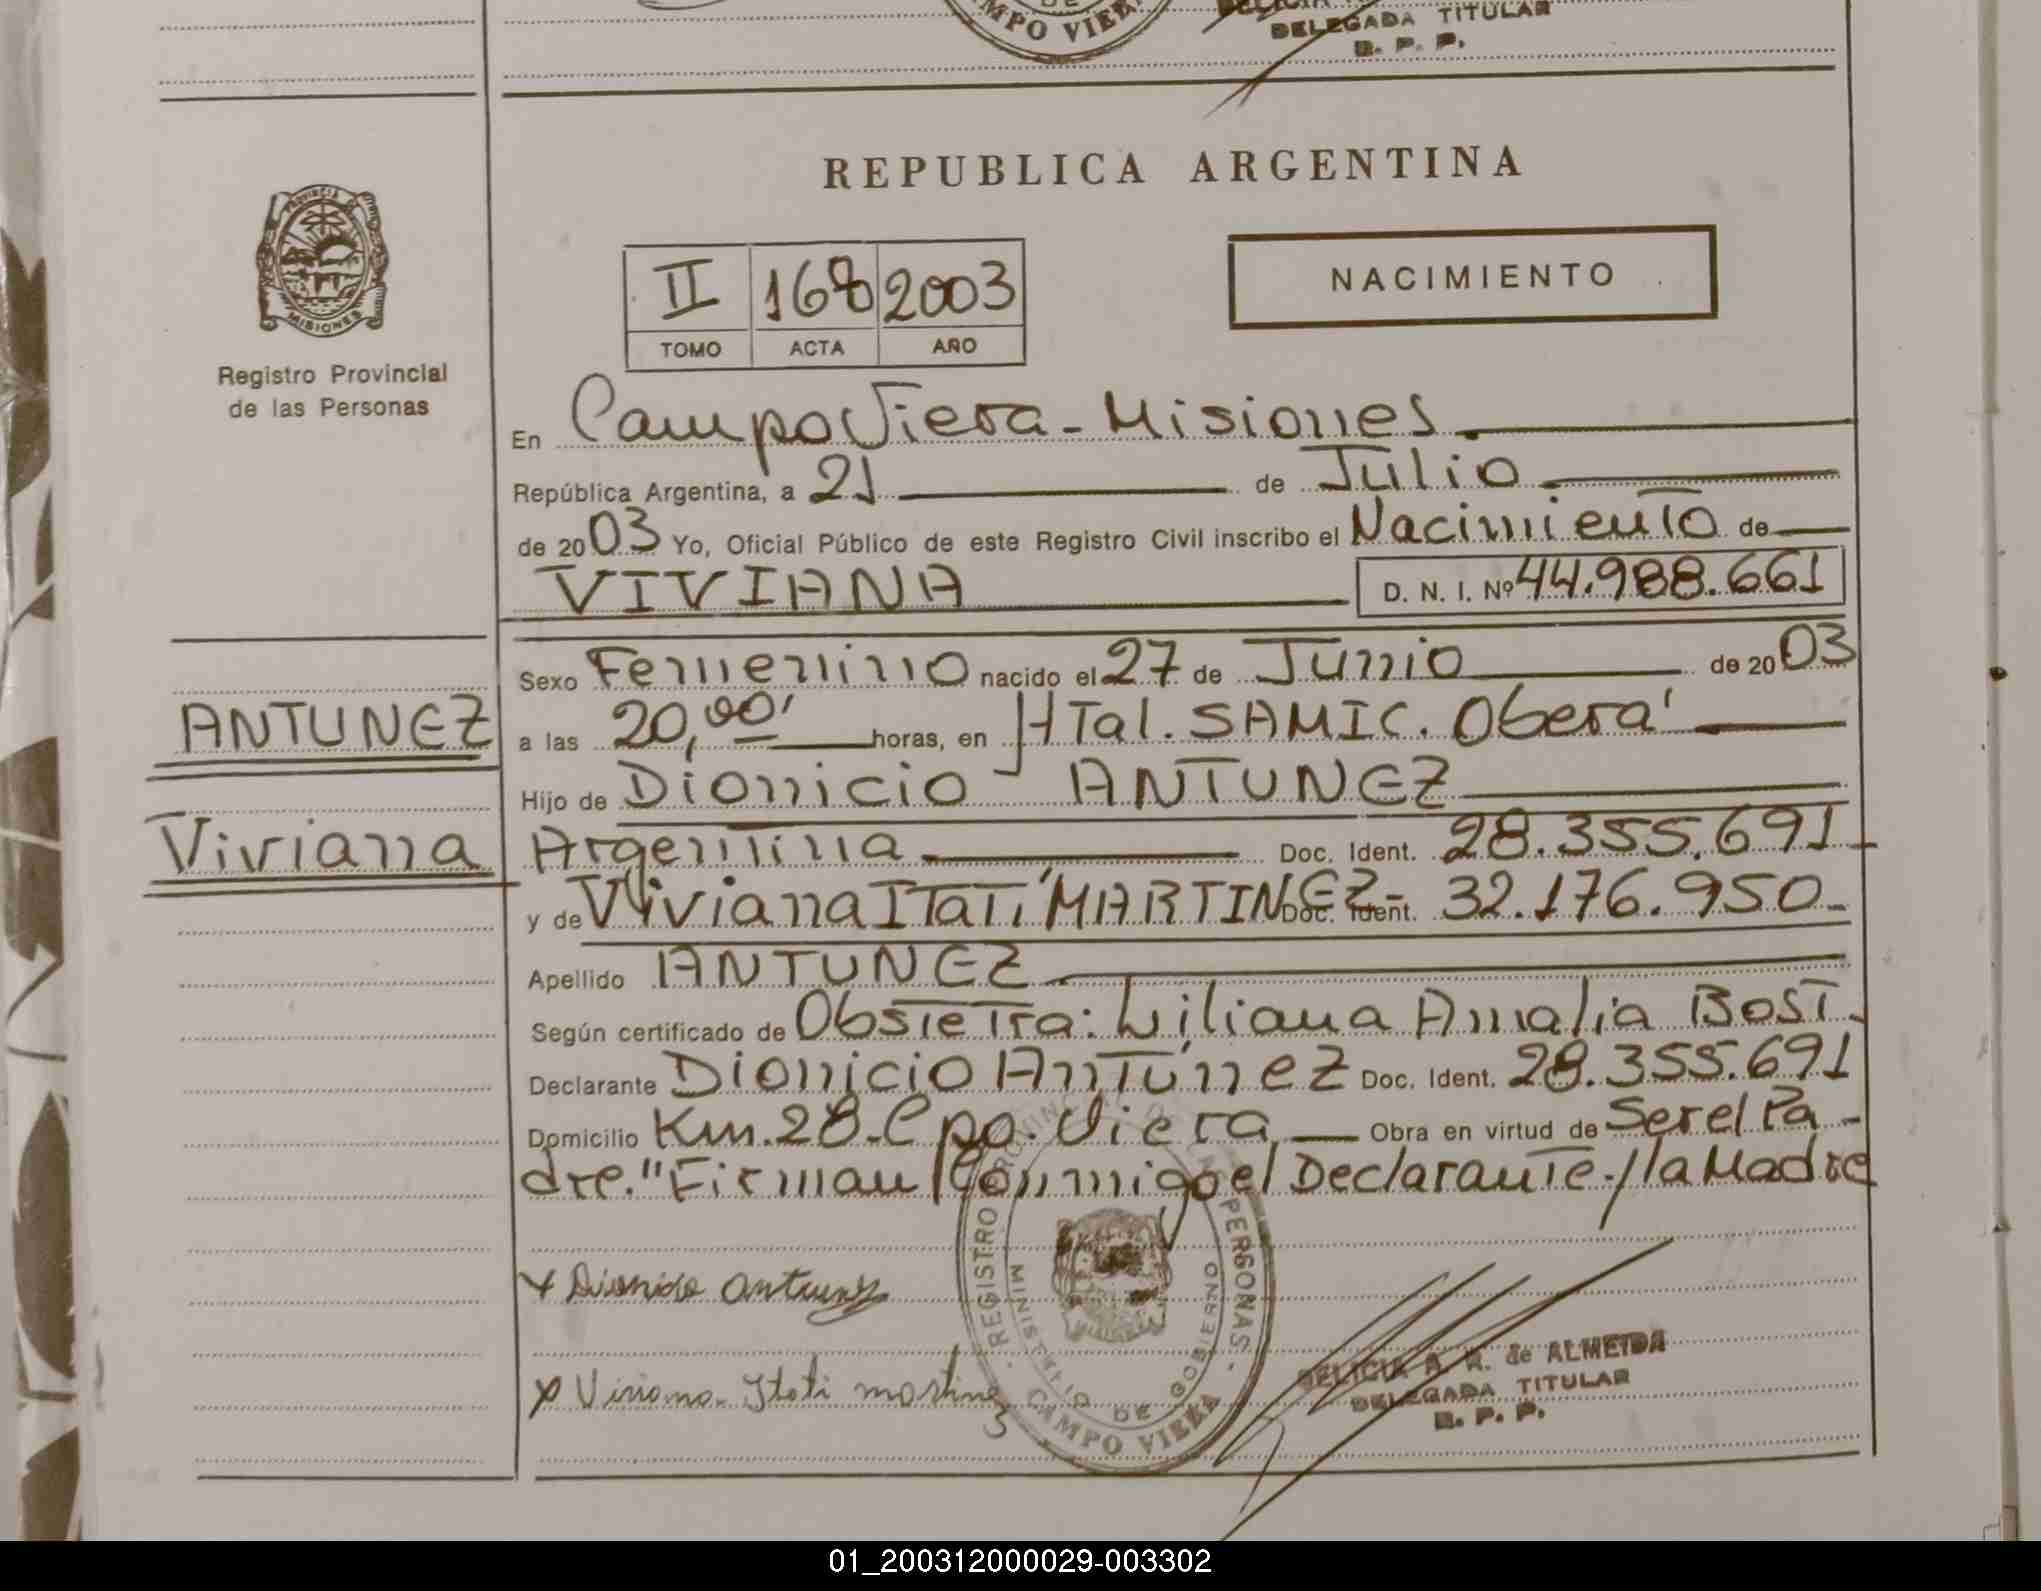 CAMPO VIERA
DELEGADA TITULAR
R. P. P.
REPUBLICA ARGENTINA
PROVINCIA DE MISIONES
II 168 2003
NACIMIENTO
TOMO ACTA AÑO
Registro Provincial
de las Personas
En Campo Viera - Misiones
República Argentina, a 21 de Julio
de 2003 Yo, Oficial Público de este Registro Civil inscribo el Nacimiento de
VIVIANA D. N. I. Nº 44.988.661
Sexo Femenino nacido el 27 de Junio de 2003
ANTUNEZ
a las 20,00' horas, en HTal. SAMIC. Oberá
Hijo de Dionicio ANTUNEZ
Viviana
Argentina Doc. Ident. 28.355.691
y de Viviana ITatí MARTINEZ - Doc. Ident. 32.176.950
Apellido ANTUNEZ
Según certificado de Obstetra: Liliana Amalia BOST.
Declarante Dionicio Antúnez Doc. Ident. 28.355.691
Domicilio Km. 28. Cpo. Viera Obra en virtud de Ser el Pa-
dre." Firman Conmigo el Declarante / la Madre
x Dionicio Antunez
x Viviana Itati Martinez
REGISTRO PROVINCIAL DE LAS PERSONAS
MINISTERIO DE GOBIERNO
CAMPO VIERA
DELICIA A. R. de ALMEIDA
DELEGADA TITULAR
R. P. P.
01_200312000029-003302